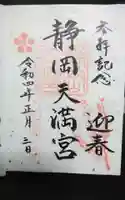 奉拝記念
迎春
静岡天満宮
令和四年正月三日